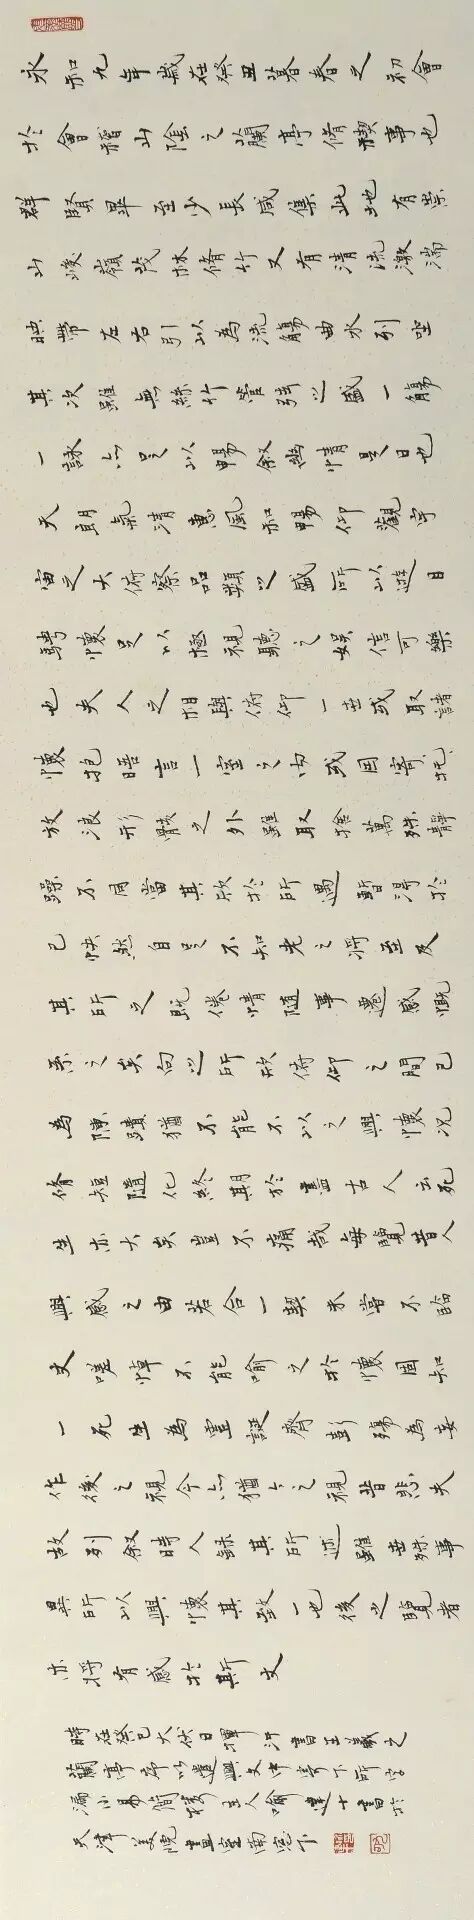 永和九年歲在癸丑暮春之初會
於會稽山陰之蘭亭脩禊事也
群賢畢至少長咸集此地有崇
山峻嶺茂林脩竹又有清流激湍
映帶左右引以為流觴曲水列坐
其次雖無絲竹管弦之盛一觴
一詠亦足以暢叙幽情是日也
天朗氣清惠風和暢仰觀宇
宙之大俯察品類之盛所以遊目
騁懷足以極視聽之娛信可樂
也夫人之相與俯仰一世或取諸
懷抱晤言一室之内或因寄托
放浪形骸之外雖取捨萬殊靜
躁不同當其欣於所遇暫得於
己怏然自足不知老之將至及
其所之既倦情隨事遷感慨
係之矣向之所欣俯仰之間已
為陳蹟猶不能不以之興懷況
脩短隨化終期於盡古人云死
生亦大矣豈不痛哉每覽昔人
興感之由若合一契未嘗不臨
文嗟悼不能喻之於懷固知
一死生為虛誕齊彭殤為妄
作後之視今亦猶今之視昔悲夫
故列叙時人錄其所述雖世殊事
異所以興懷其致一也後之覽者
亦將有感於斯文
時在癸巳大伏日揮汗書王羲之
蘭亭序以遣興文中寄下所字
漏小易簡樓主人喻建十書於
天津美院畫室南窗下